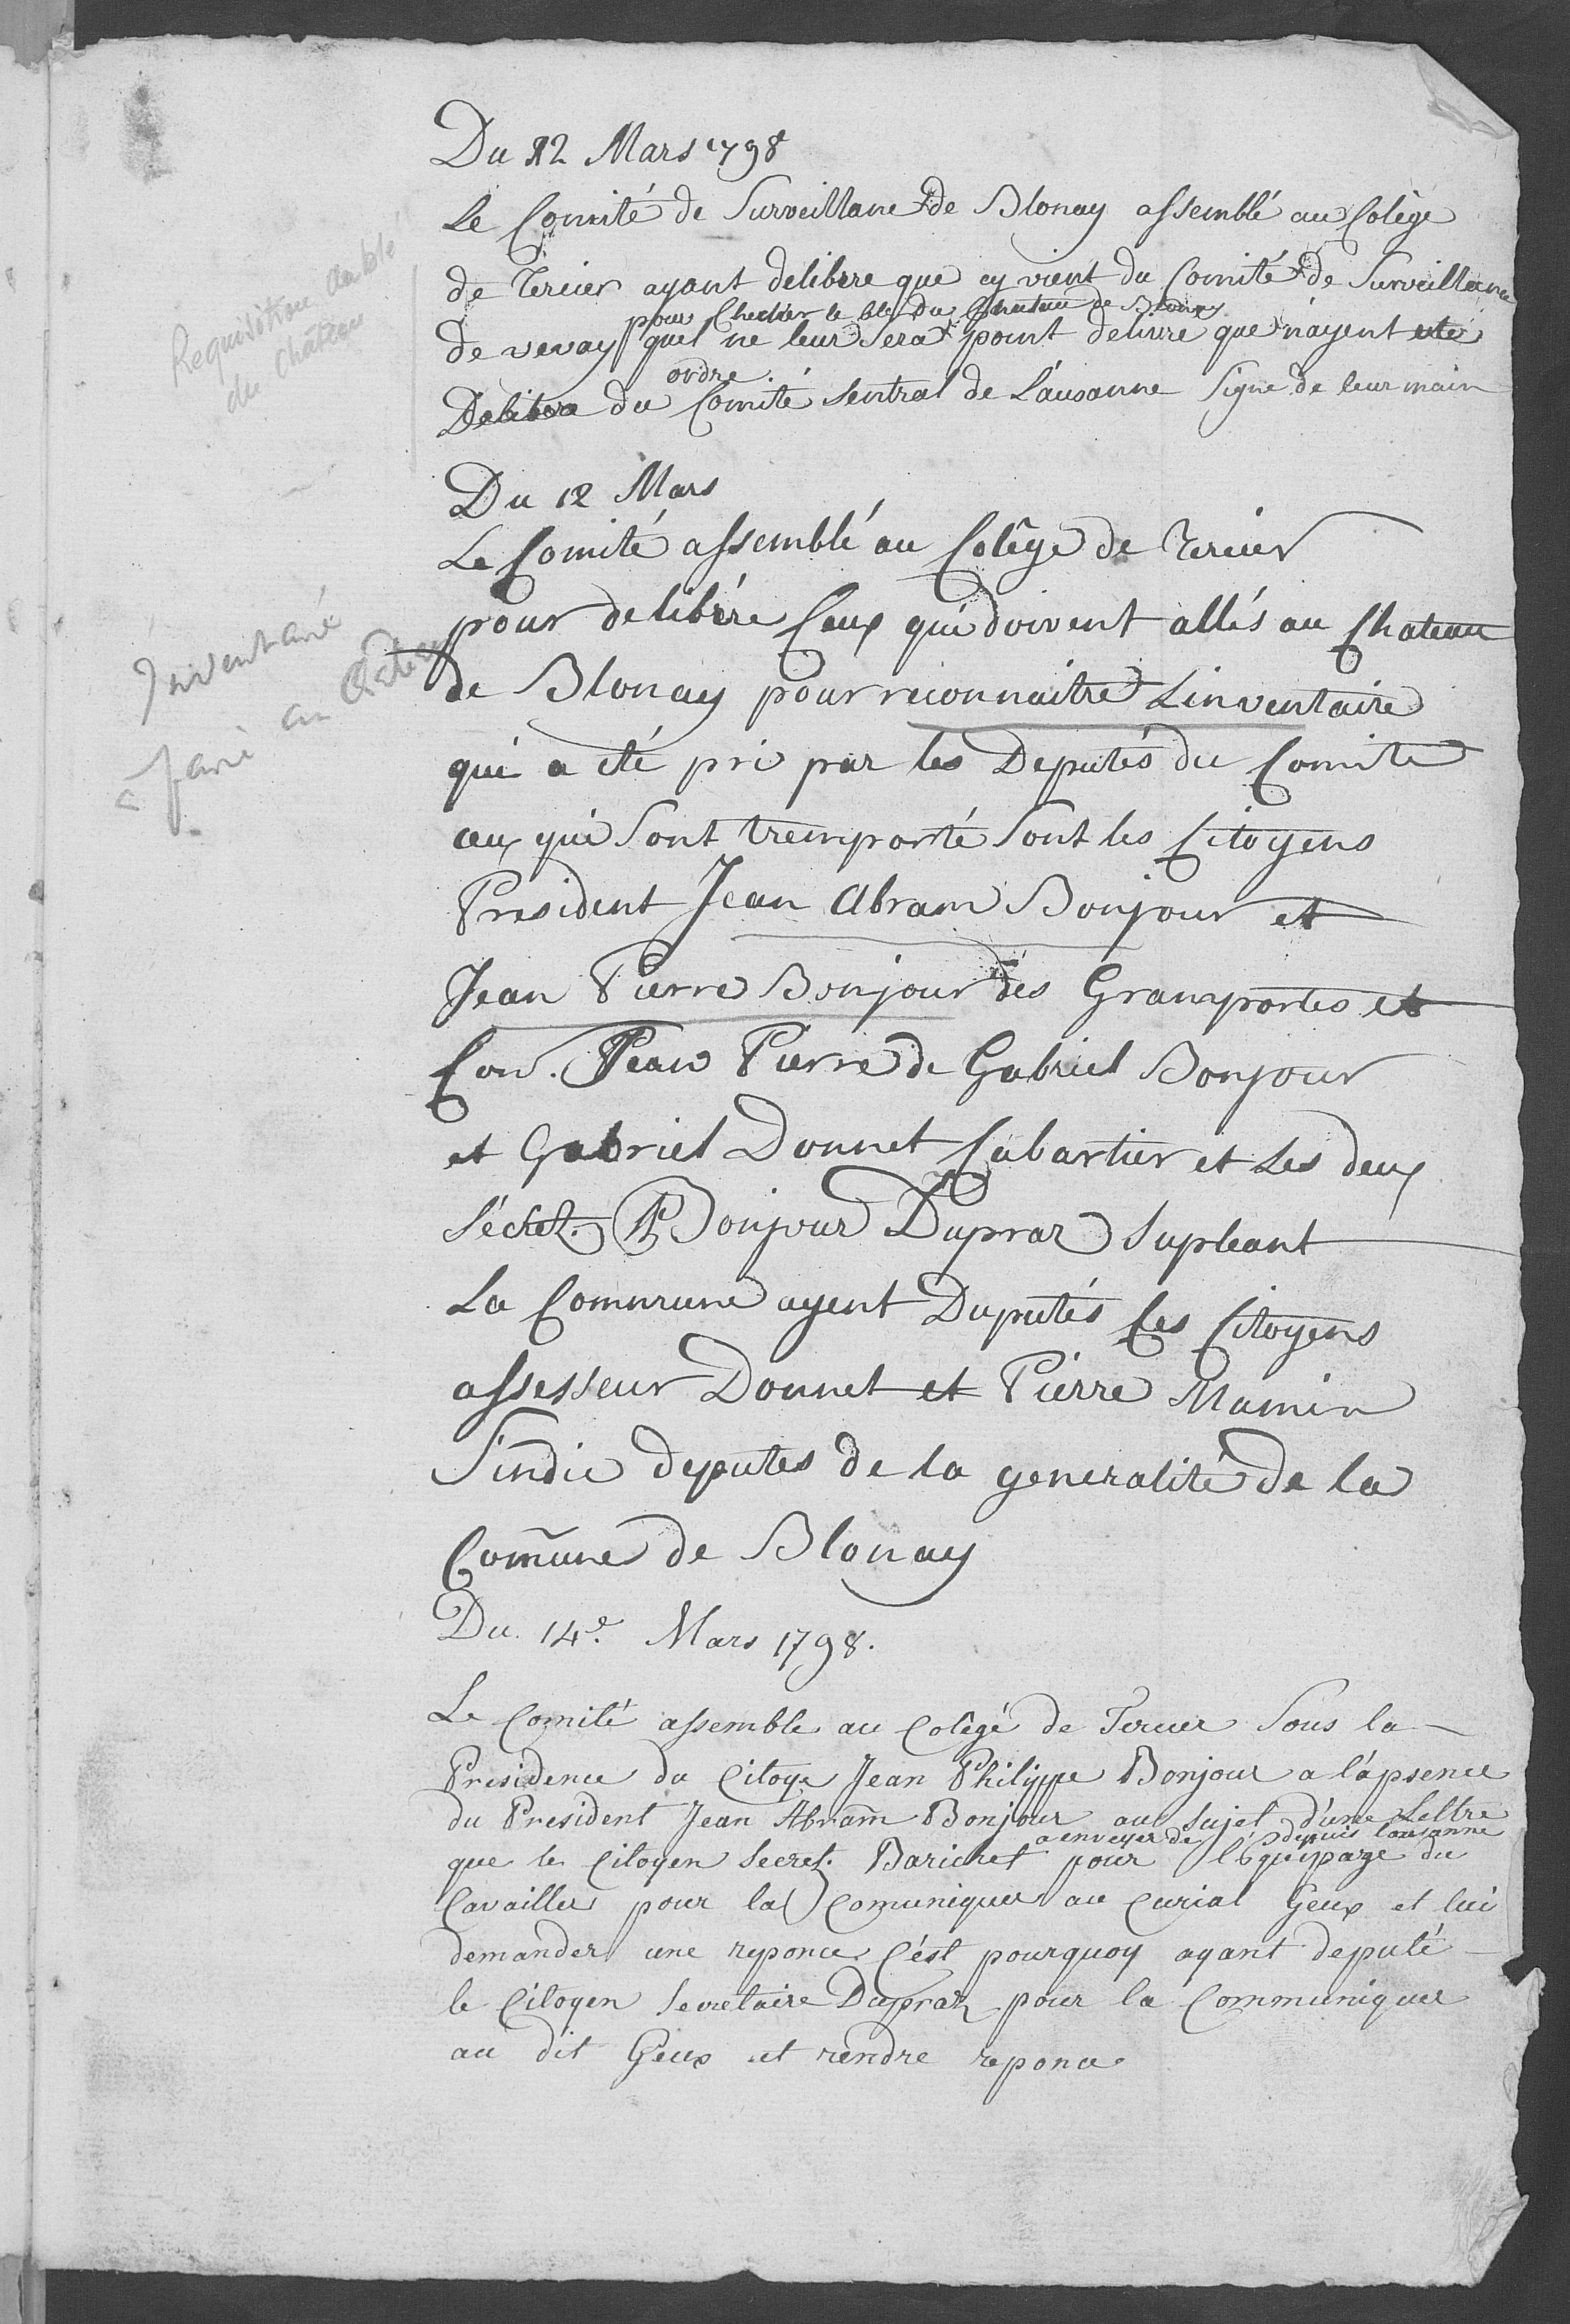 Du 12 Mars 1798
Le Comité de Surveillane de Blonay assemblé au Colège
de Tercier ayant delibere que cy vient du Comité de Surveillance
pour Checher le blé du Chateau de Blonay
de vevay quel ne leur sera point delivre que n'ayent ete
ordre
Delibere du Comité Sentral de Lausanne Signe de leur main
Requisition du blé
du Château
Du 12 Mars
Le Comité assemblé au Colêge de Tercier
pour delibére Ceux qui doivent allés au Chateau
de Blonay pour reconnaitre Linventaire
qui a été pri par les Deputés du Comite
ceux qui Sont tremporté Sont les Citoyens
President Jean Abram Bonjour et
Jean Pierre Bonjour des Gramportes et
Con. Jean Pierre de Gabriel Bonjour
et Gabriel Donnet Cabartier et Les deux
Sécret. Bonjour Dupraz Supleant
La Commune ayent Duputés Les Citoyens
assesseur Donnet et Pierre Mamin
Sindic deputes de la generalité de la
Com̃une de Blonay
Inventaire
à faire au Château
Du 14e. Mars 1798.
Le Comité assemble au Colêgé de Tercier Sous la
Presidence du Citoye Jean Philippe Bonjour a l'apsence
du President Jean Abram Bonjour au Sujet d'une Lettre
a envoyer de depuis Lausanne
que le Citoyen Secret. Barichet pour l'équipage du
Cavaillier pour la Comuniquer au Curial Geux et lui
demander une reponce C'ést pourquoy ayant deputé
le Citoyen Secretaire Dupraz pour la Communiquer
au dit Geux et rendre reponce